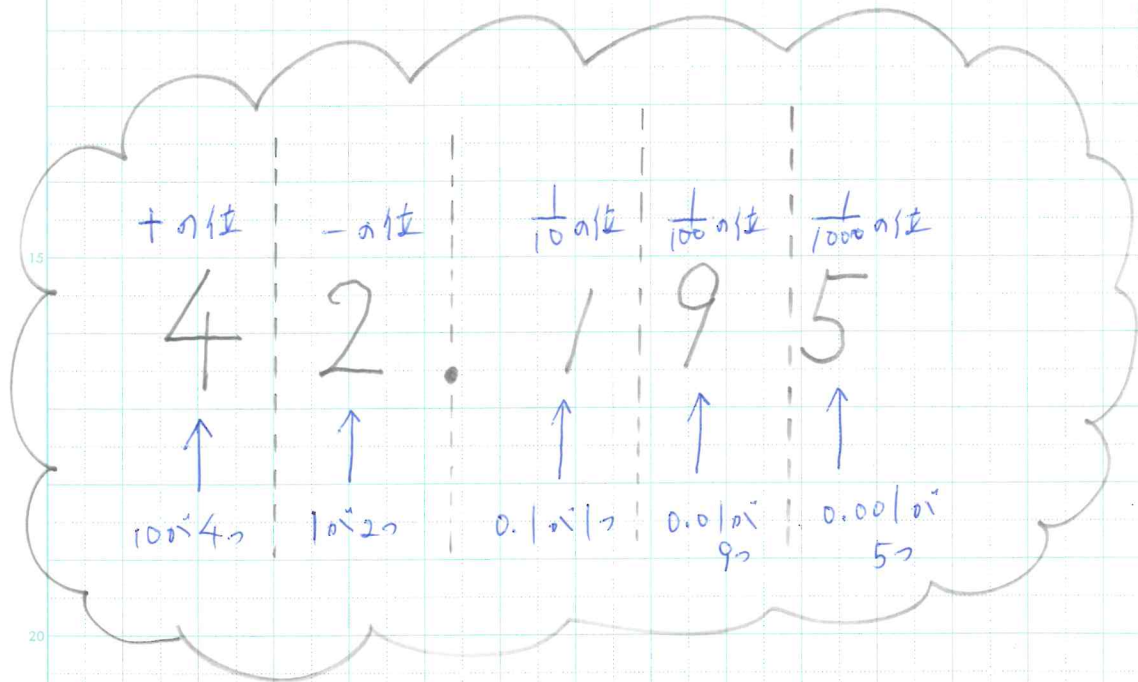 十の位 一の位 1/10の位 1/100の位 1/1000の位
15
4 2 . 1 9 5
↑ ↑ ↑ ↑ ↑
10が4つ 1が2つ 0.1が1つ 0.01が 0.001が
9つ 5つ
20